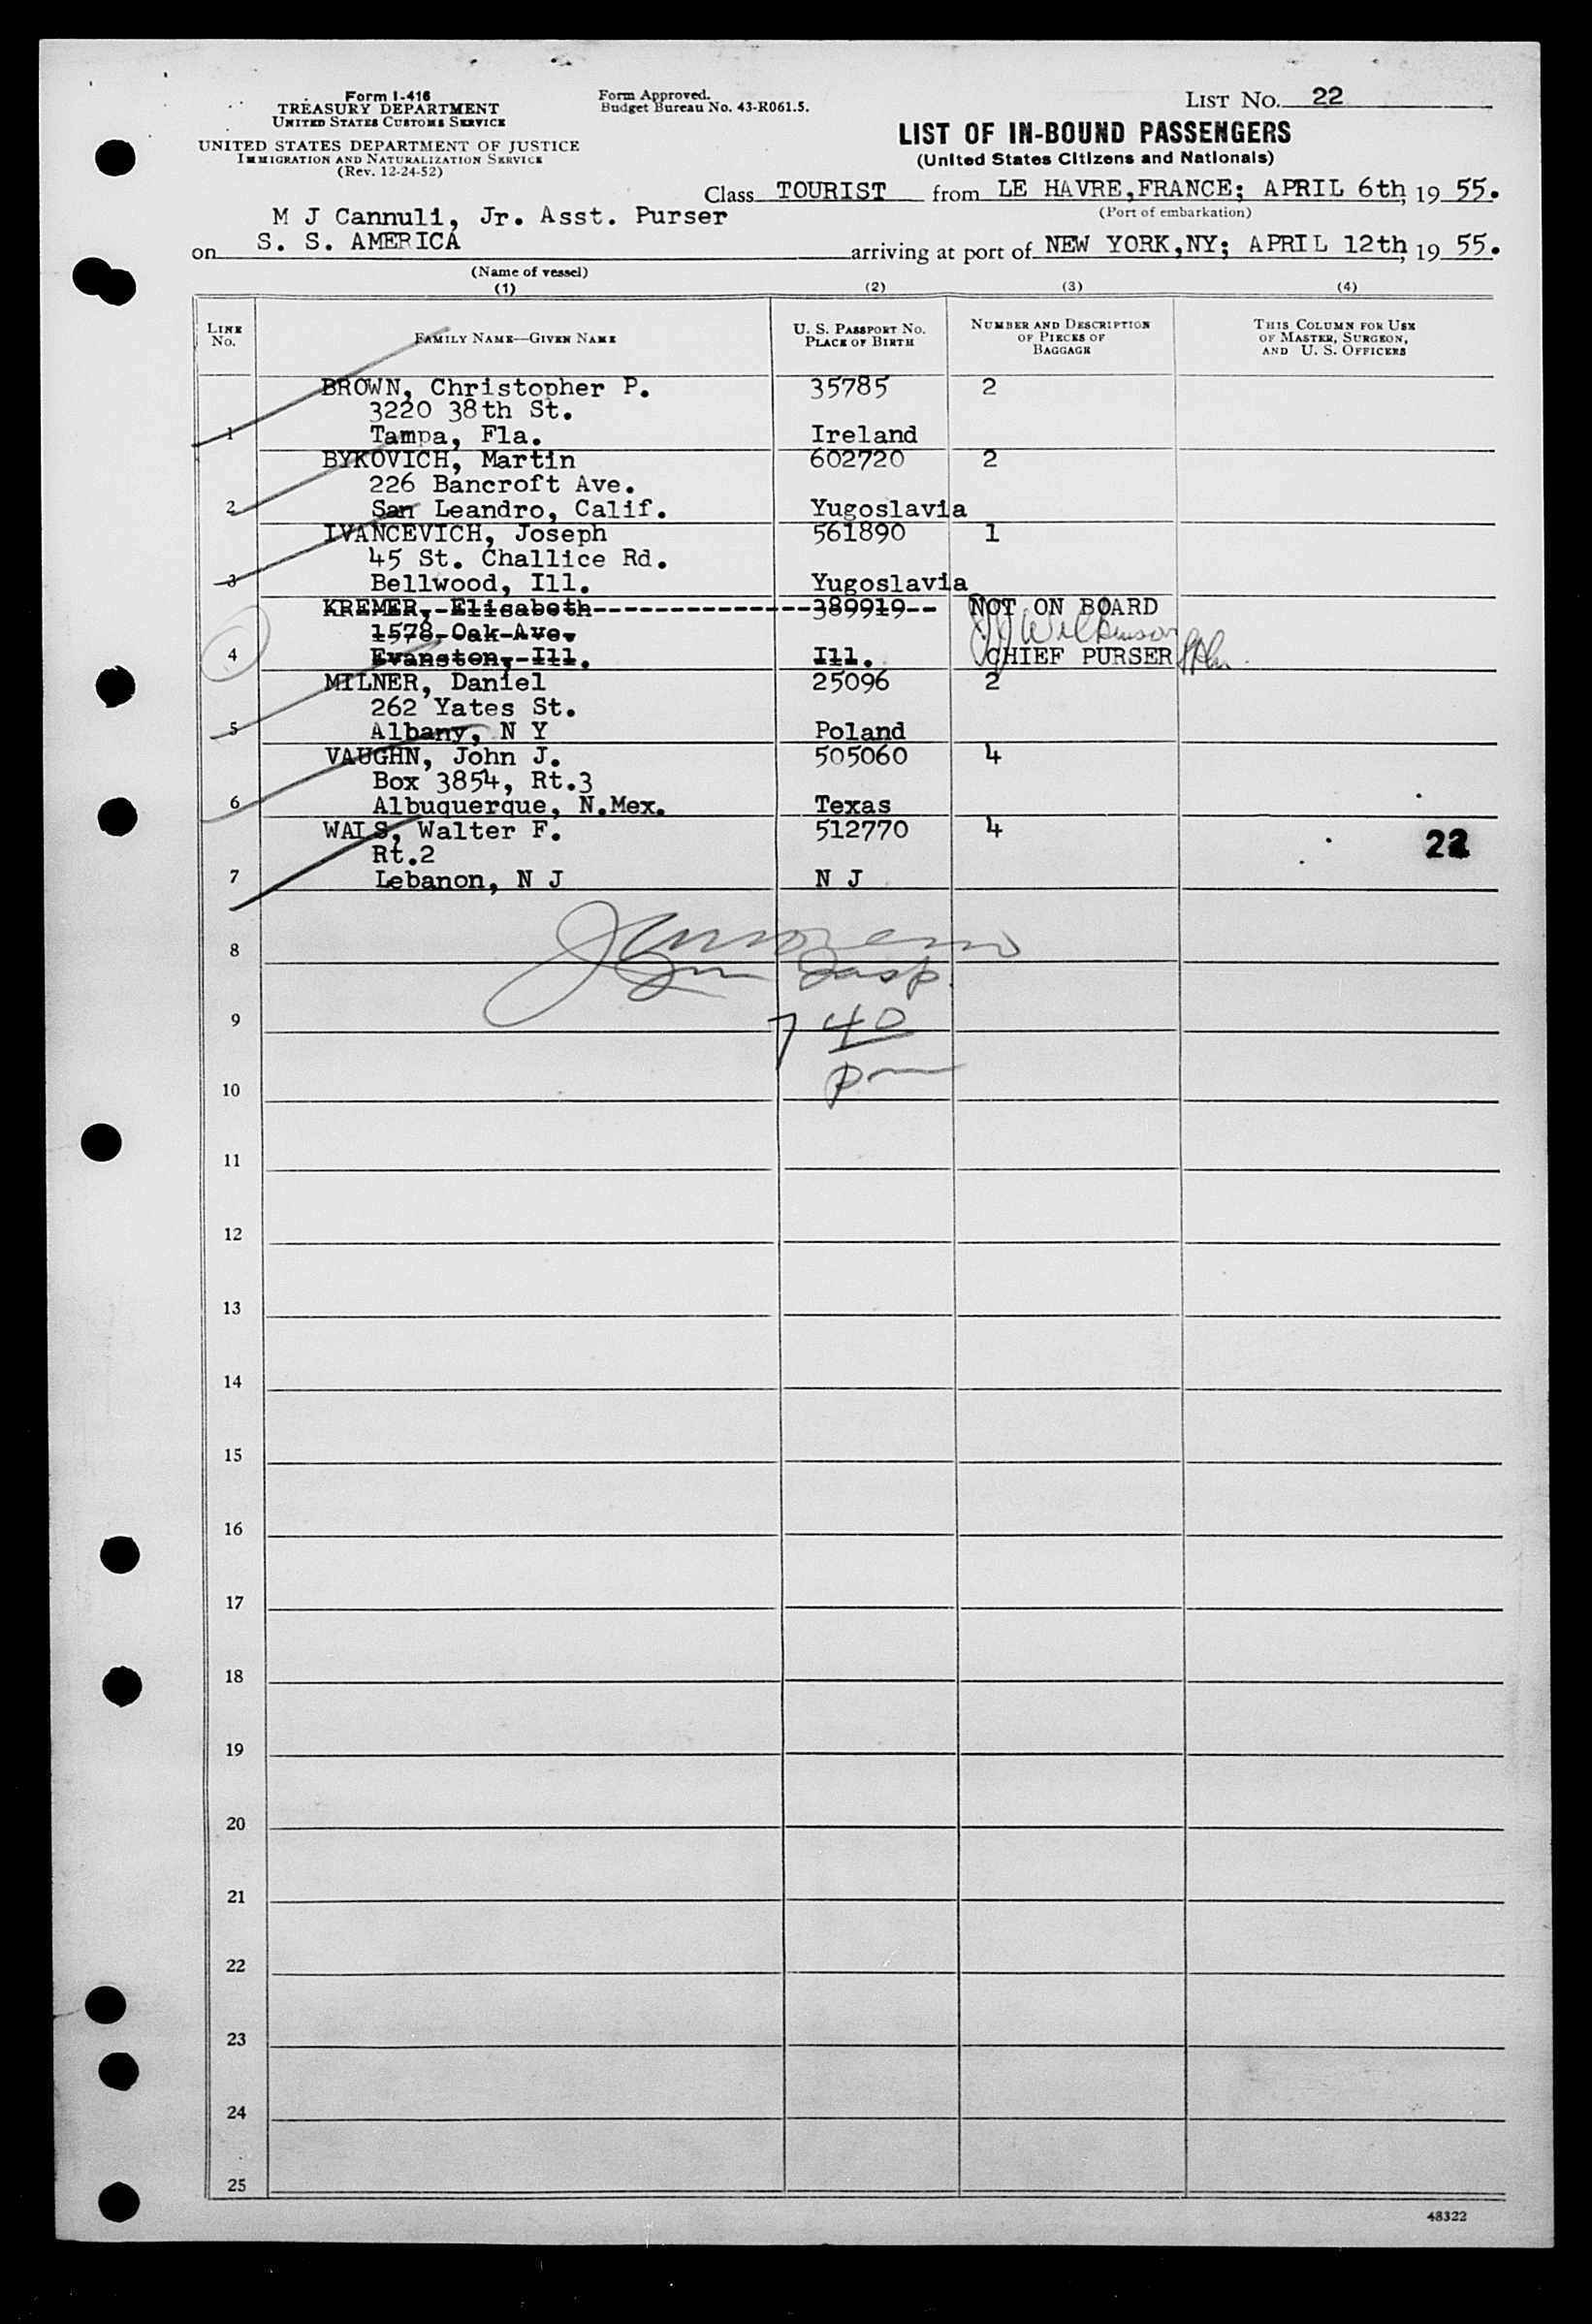 Form I-416
TREASURY DEPARTMENT
UNITED STATES CUSTOMS SERVICE
UNITED STATES DEPARTMENT OF JUSTICE
IMMIGRATION AND NATURALIZATION SERVICE
(Rev. 12-24-52)
Form Approved.
Budget Bureau No. 43-R061.5.
LIST NO. 22
LIST OF IN-BOUND PASSENGERS
(United States Citizens and Nationals)
Class TOURIST from LE HAVRE,FRANCE; APRIL 6th, 19 55.
(Port of embarkation)
M J Cannuli, Jr. Asst. Purser
on S. S. AMERICA arriving at port of NEW YORK,NY; APRIL 12th, 19 55.
(Name of vessel)
(1) (2) (3) (4)
LINE NO. FAMILY NAME—GIVEN NAME U. S. PASSPORT NO. PLACE OF BIRTH NUMBER AND DESCRIPTION OF PIECES OF BAGGAGE THIS COLUMN FOR USE OF MASTER, SURGEON, AND U. S. OFFICERS
BROWN, Christopher P. 35785 2
3220 38th St.
1 Tampa, Fla. Ireland
BYKOVICH, Martin 602720 2
226 Bancroft Ave.
2 San Leandro, Calif. Yugoslavia
IVANCEVICH, Joseph 561890 1
45 St. Challice Rd.
3 Bellwood, Ill. Yugoslavia
KREMER, Elisabeth 389919 NOT ON BOARD
1578 Oak Ave. Wilkinson
4 Evanston, Ill. Ill. CHIEF PURSER
MILNER, Daniel 25096 2
262 Yates St.
5 Albany, N Y Poland
VAUGHN, John J. 505060 4
Box 3854, Rt.3
6 Albuquerque, N.Mex. Texas
WALS, Walter F. 512770 4 22
Rt.2
7 Lebanon, N J N J
8
Insp.
9
7 40
pm
10
11
12
13
14
15
16
17
18
19
20
21
22
23
24
25
48322